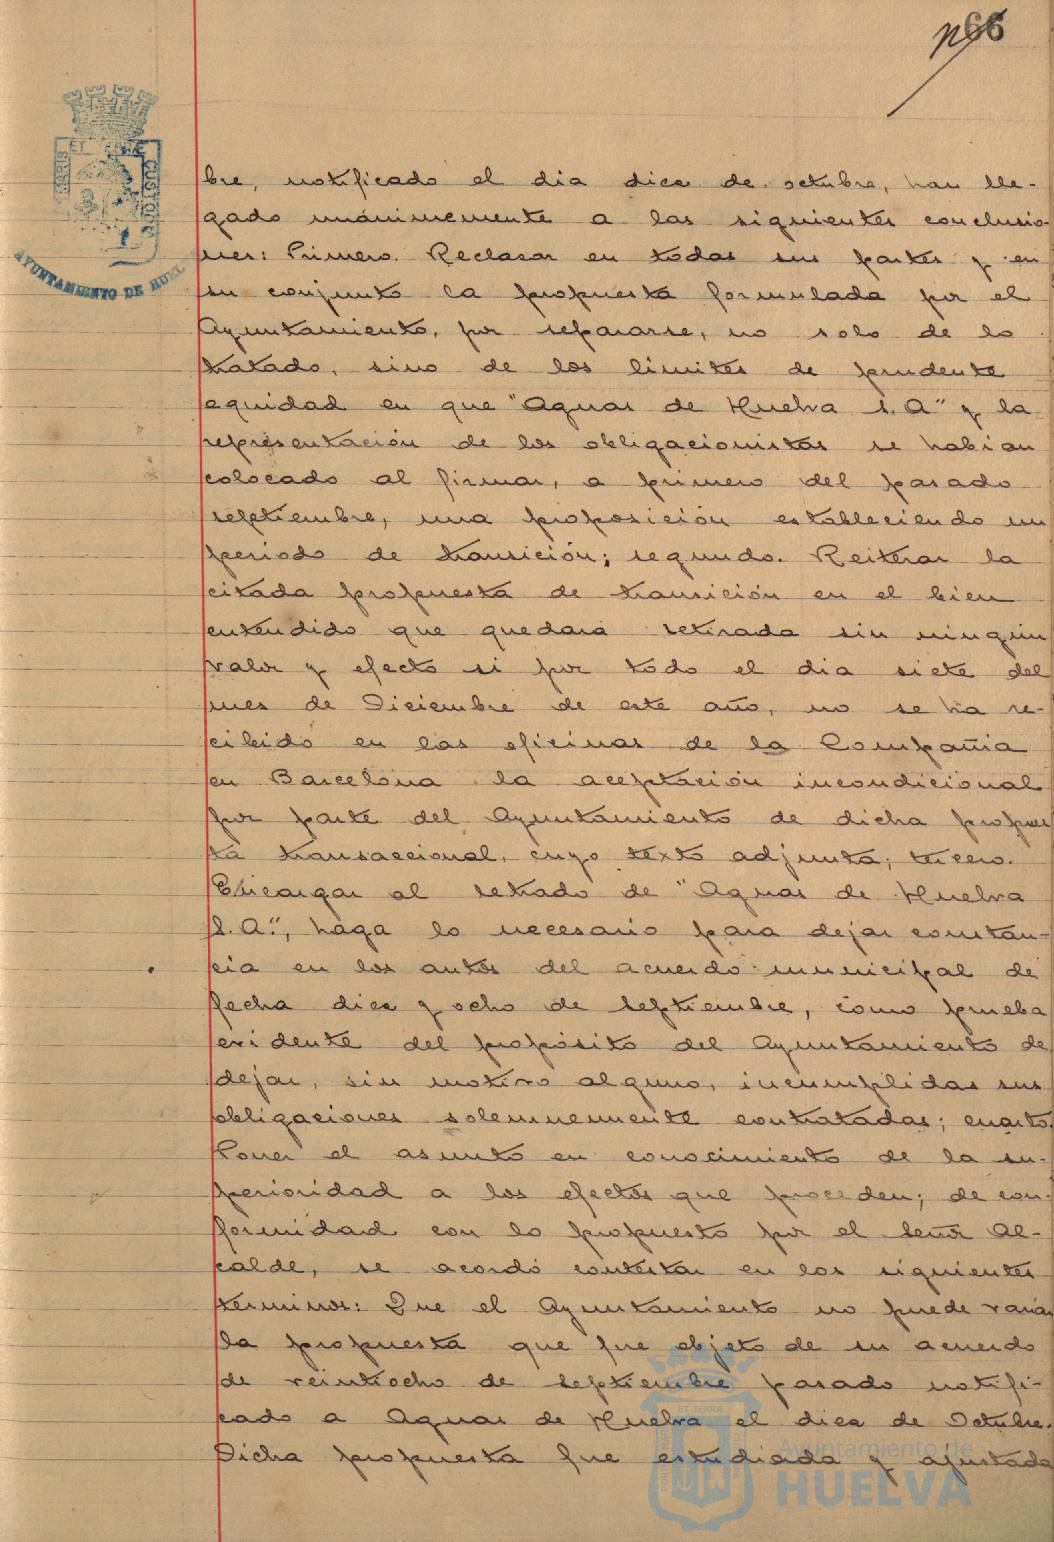 66
MARIS ET TERRÆ CUSTODI
AYUNTAMIENTO DE HUEL
bre, notificado el dia diez de octubre, han lle-
gado unánimemente a las siguientes conclusio-
nes: Primero. Reclasar en todas sus partes y en
su conjunto la propuesta formulada por el
Ayuntamiento, por separarse, no solo de lo
tratado, sino de los límites de prudente
equidad en que "Aguas de Huelva S.A" y la
representación de los obligacionistas se habian
colocado al firmar, a primero del pasado
septiembre, una proposición estableciendo un
periodo de transición; segundo. Reiterar la
citada propuesta de transición en el bien
entendido que quedará retirada sin ningún
valor y efecto si por todo el dia siete del
mes de Diciembre de este año, no se ha re-
cibido en las oficinas de la Compañia
en Barcelona la aceptación incondicional
por parte del Ayuntamiento de dicha propues
ta transaccional, cuyo texto adjunta; tercero.
Encargar al letrado de "Aguas de Huelva
S.A.", haga lo necesario para dejar constan-
cia en los autos del acuerdo municipal de
fecha diez y ocho de septiembre, como prueba
evidente del propósito del Ayuntamiento de
dejar, sin motivo alguno, incumplidas sus
obligaciones solemnemente contratadas; cuarto.
Poner el asunto en conocimiento de la su-
perioridad a los efectos que proceden; de con-
formidad con lo propuesto por el Señor Al-
calde, se acordó contestar en los siguientes
terminos: Que el Ayuntamiento no puede variar
la propuesta que fue objeto de su acuerdo
de veintiocho de septiembre pasado notifi-
cado a Aguas de Huelva el diez de Octubre.
Dicha propuesta fue estudiada y ajustada
Ayuntamiento de
HUELVA